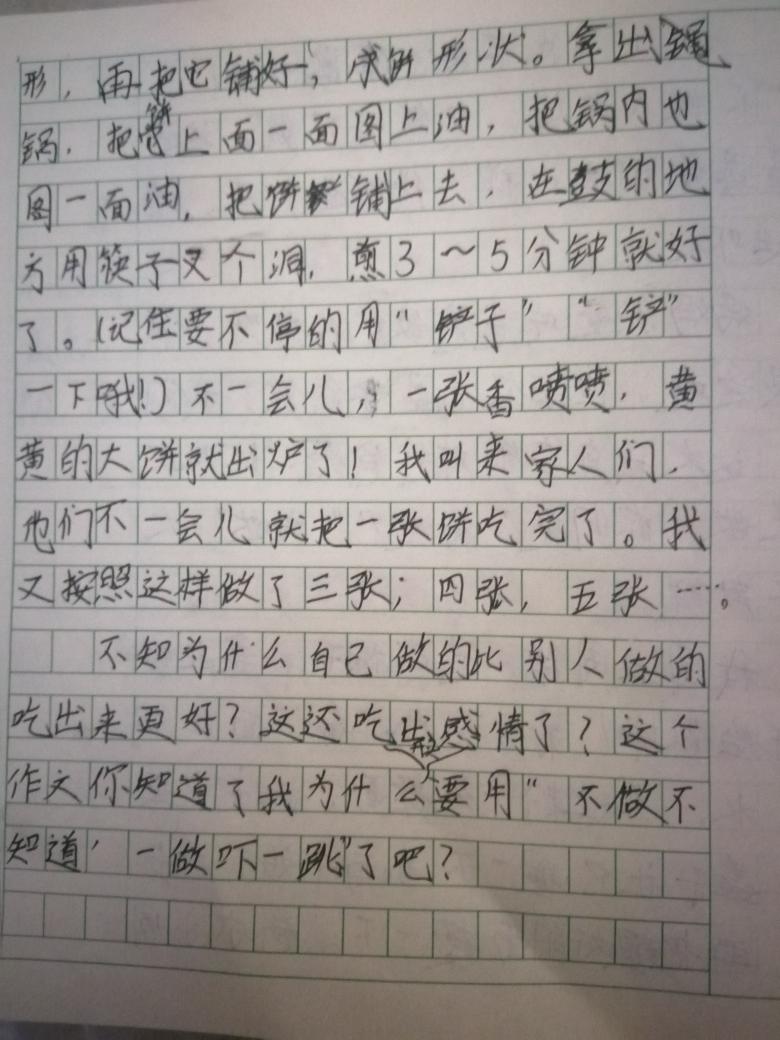 形，再把它铺好，成饼形状。拿出
锅．把饼上面一面图上油，把锅内也
图一面油，把饼铺上去，在鼓的地
方用筷子叉个洞，煎3～5分钟就好
了。(记住要不停的用“铲子”“铲”
一下哦!)不一会儿，一张香喷喷，黄
黄的大饼就出炉了！我叫来家人们，
他们不一会儿就把一张饼吃完了。我
又按照这样做了三张；四张，五张……。
不知为什么自己做的比别人做的
吃出来更好？这还吃出感情了？这个
作文你知道了我为什么要用“不做不
知道，一做吓一跳”了吧？